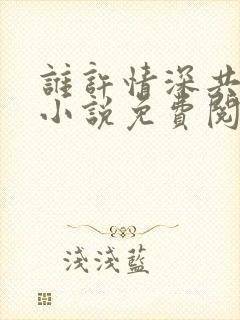 誰許情深共
小說免費閱
淺淺藍